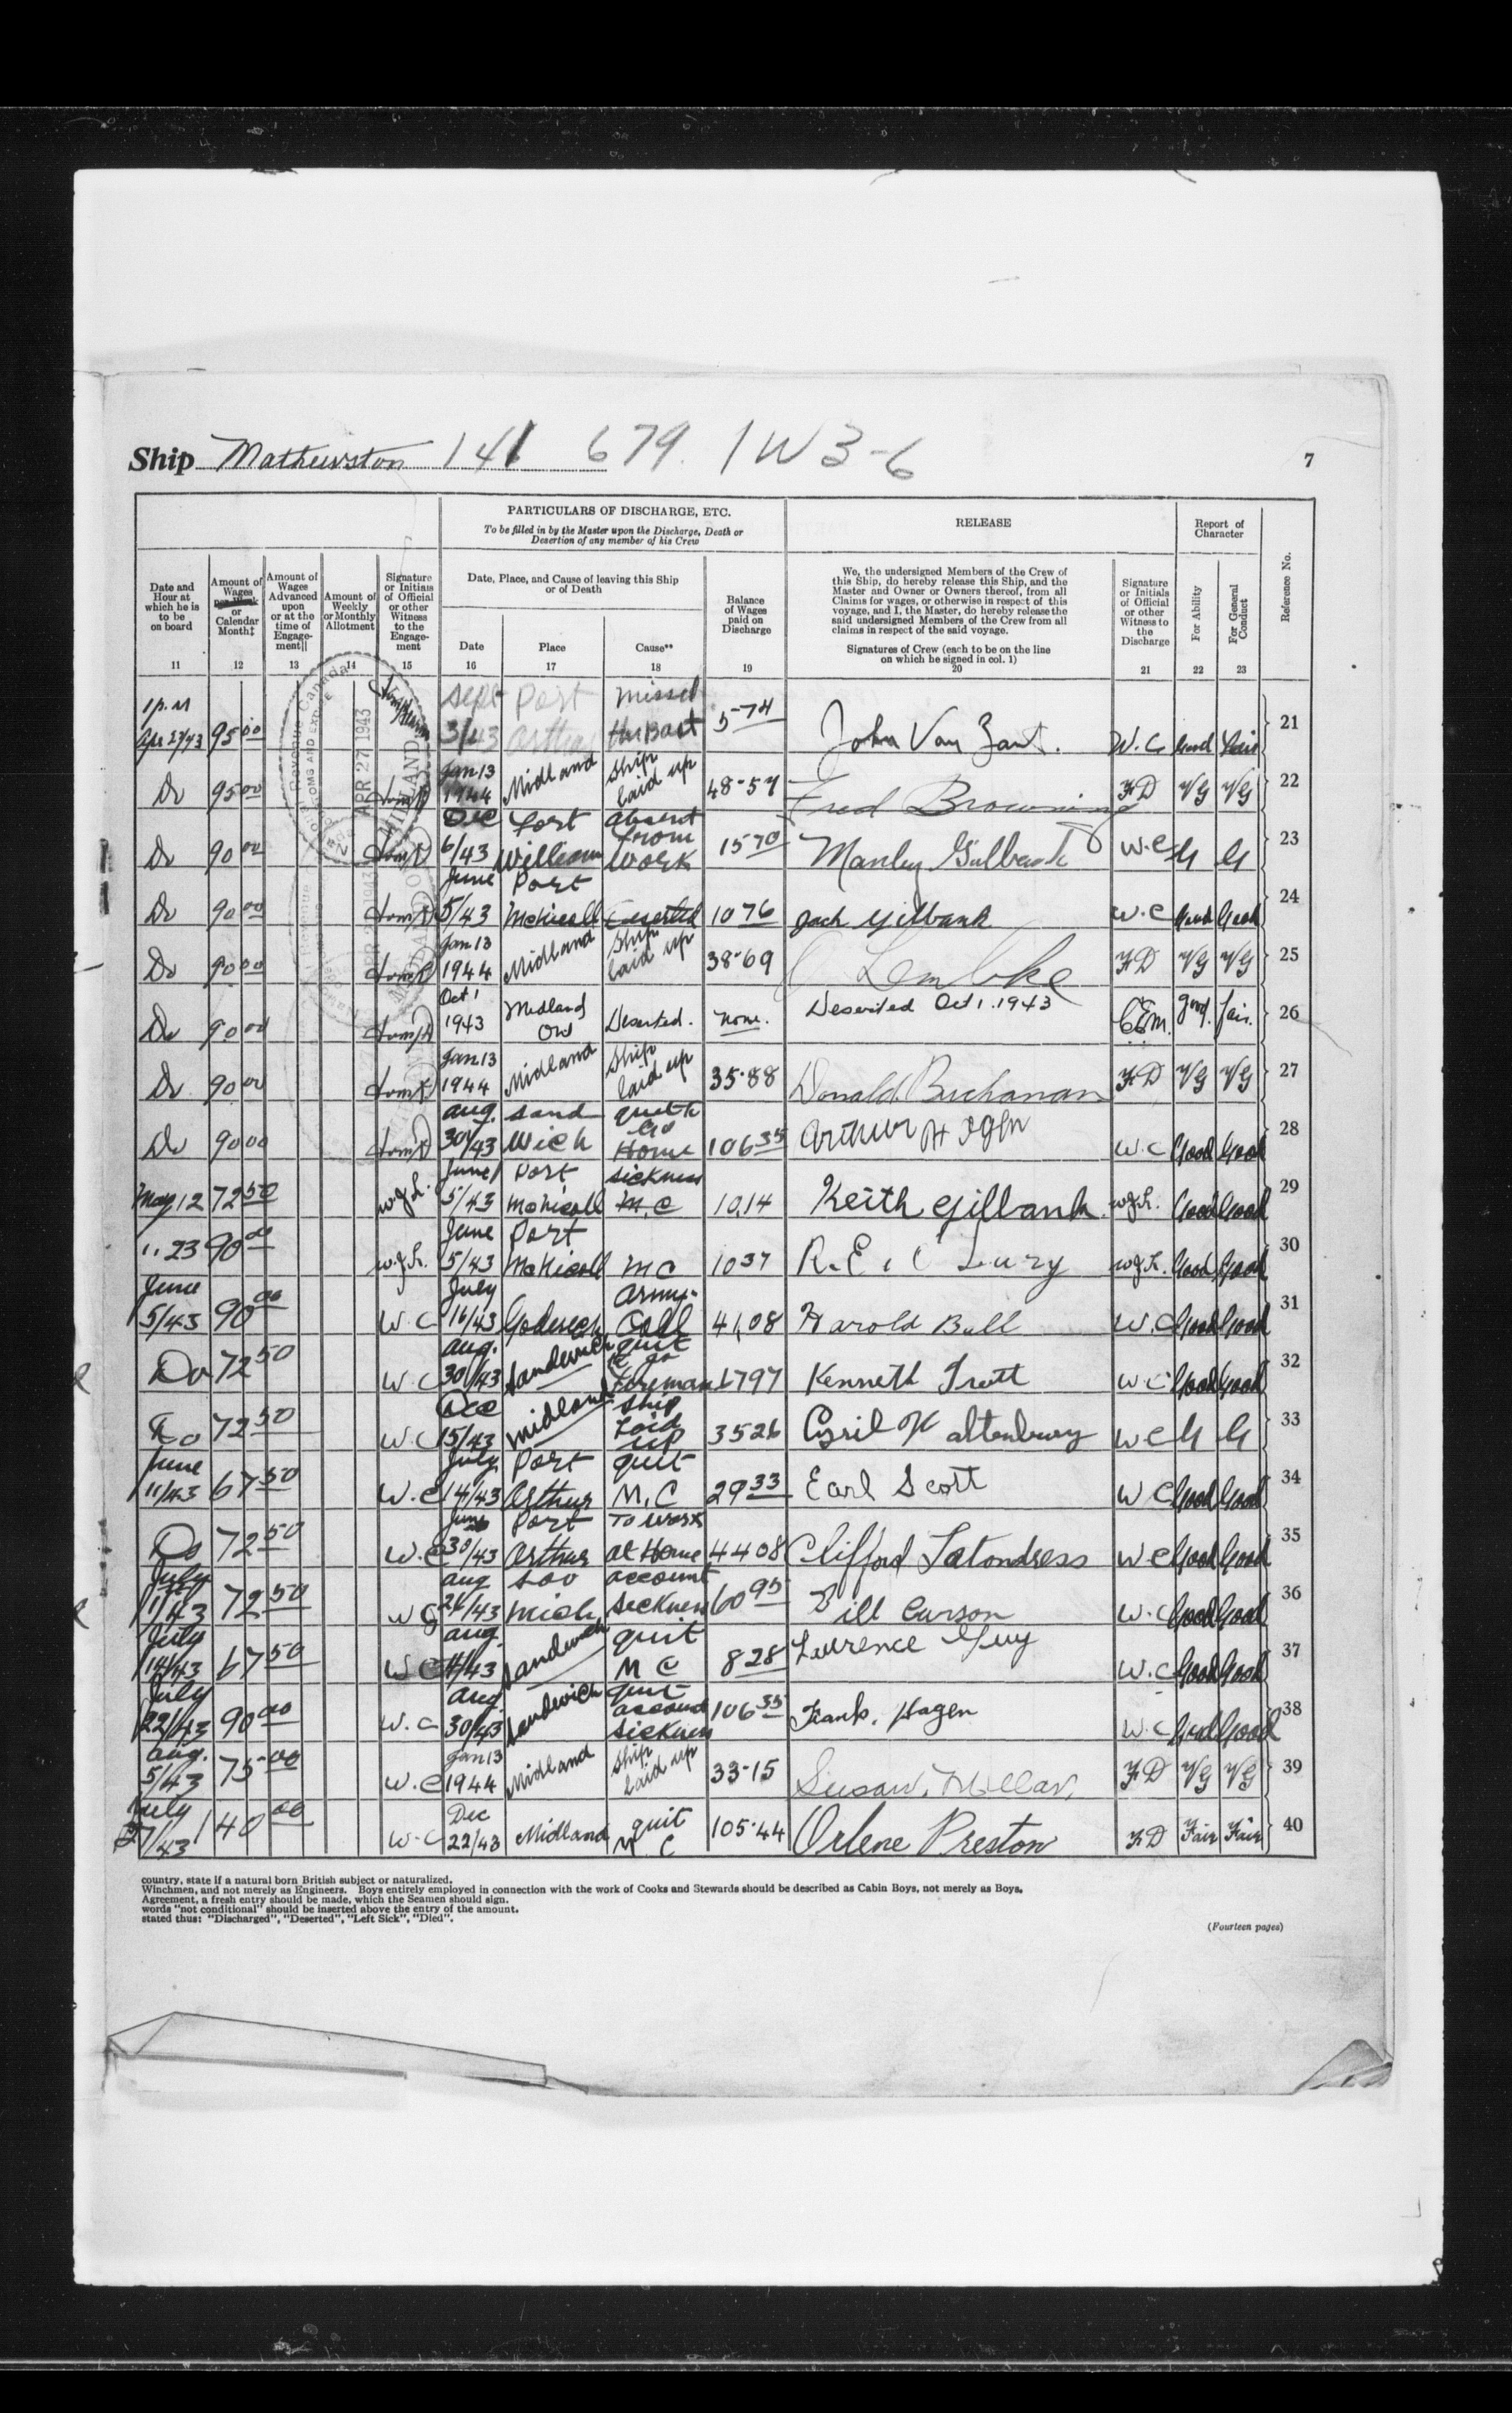 Ship Mathewston 141 679. 1W3-6 7
PARTICULARS OF DISCHARGE, ETC.
To be filled in by the Master upon the Discharge, Death or
Desertion of any member of his Crew
RELEASE
Report of
Character
Date and
Hour at
which he is
to be
on board
11
Amount of
Wages
per Week
or
Calendar
Month‡
12
Amount of
Wages
Advanced
upon
or at the
time of
Engage-
ment||
13
Amount of
Weekly
or Monthly
Allotment
14
Signature
or Initials
of Official
or other
Witness
to the
Engage-
ment
15
Date, Place, and Cause of leaving this Ship
or of Death
Date
16
Place
17
Cause**
18
Balance
of Wages
paid on
Discharge
19
We, the undersigned Members of the Crew of
this Ship, do hereby release this Ship, and the
Master and Owner or Owners thereof, from all
Claims for wages, or otherwise in respect of this
voyage, and I, the Master, do hereby release the
said undersigned Members of the Crew from all
claims in respect of the said voyage.
Signatures of Crew (each to be on the line
on which he signed in col. 1)
20
Signature
or Initials
of Official
or other
Witness to
the
Discharge
21
For Ability
22
For General
Conduct
23
Reference No.
APR 27 1943
MIDLAND
1 p.m Apr 27/43 95 00 Sept 3/43 Port Arthur missed the Boat 5-74 John Van Zant. W.C. Good Fair 21
Do 95 00 Jan 13 1944 Midland Ship laid up 48-57 Fred Browning FD VG VG 22
Do 90 00 Dec 6/43 Fort William absent from work 15 70 Manley Gilbank W.C G G 23
Do 90 00 June 5/43 Port McNicoll Deserted 10 76 Jack Gilbank W.C Good Good 24
Do 90 00 Jan 13 1944 Midland Ship laid up 38-69 Lembke FD VG VG 25
Do 90 00 Oct 1 1943 Midland Ont Deserted. none. Deserted Oct 1. 1943 good. fair. 26
Do 90 00 Jan 13 1944 Midland Ship laid up 35-88 Donald Buchanan FD VG VG 27
Do 90 00 Aug. 30/43 Sandwich quit to Go Home 106 35 Arthur Hagen W.C Good Good 28
May 12 72 50 W.J.L. June 5/43 Port McNicoll sickness M.C 10.14 Keith Gilbank W.J.L. Good Good 29
" 23 90 00 W.J.L. June 5/43 Port McNicoll M C 10 37 W.J.L. Good Good 30
June 5/43 90 00 W.C July 16/43 Goderich Army Call 41.08 Harold Ball W.C Good Good 31
Do 72 50 W.C Aug. 30/43 Sandwich quit to go Foreman 17 97 Kenneth Trott W C Good Good 32
Do 72 50 W.C Dec 15/43 Midland Ship Laid up 35 26 Cyril H altenbury W C G G 33
June 11/43 67 50 W.C July 14/43 Port Arthur quit M.C 29 33 Earl Scott W C Good Good 34
Do 72 50 W.C June 30/43 Port Arthur To work at Home 44 08 Clifford Latondress W C Good Good 35
July 1/43 72 50 W C Aug 26/43 Soo Mich. account sickness 60 95 Bill Curson W.C Good Good 36
July 14/43 67 50 W C Aug. 11/43 Sandwich quit M C 8 28 Lawrence Guy W.C Good Good 37
July 22/43 90 00 W.C Aug 30/43 Sandwich quit account sickness 106 35 Frank. Hagen W.C Good Good 38
Aug. 5/43 75 00 W.C Jan 13 1944 Midland Ship laid up 33-15 Susan. Millar. FD VG VG 39
July 27/43 140 00 W.C Dec 22/43 Midland quit M. C 105-44 Orlene Preston FD Fair Fair 40
country, state if a natural born British subject or naturalized.
Winchmen, and not merely as Engineers. Boys entirely employed in connection with the work of Cooks and Stewards should be described as Cabin Boys, not merely as Boys.
Agreement, a fresh entry should be made, which the Seamen should sign.
words "not conditional" should be inserted above the entry of the amount.
stated thus: "Discharged", "Deserted", "Left Sick", "Died".
(Fourteen pages)